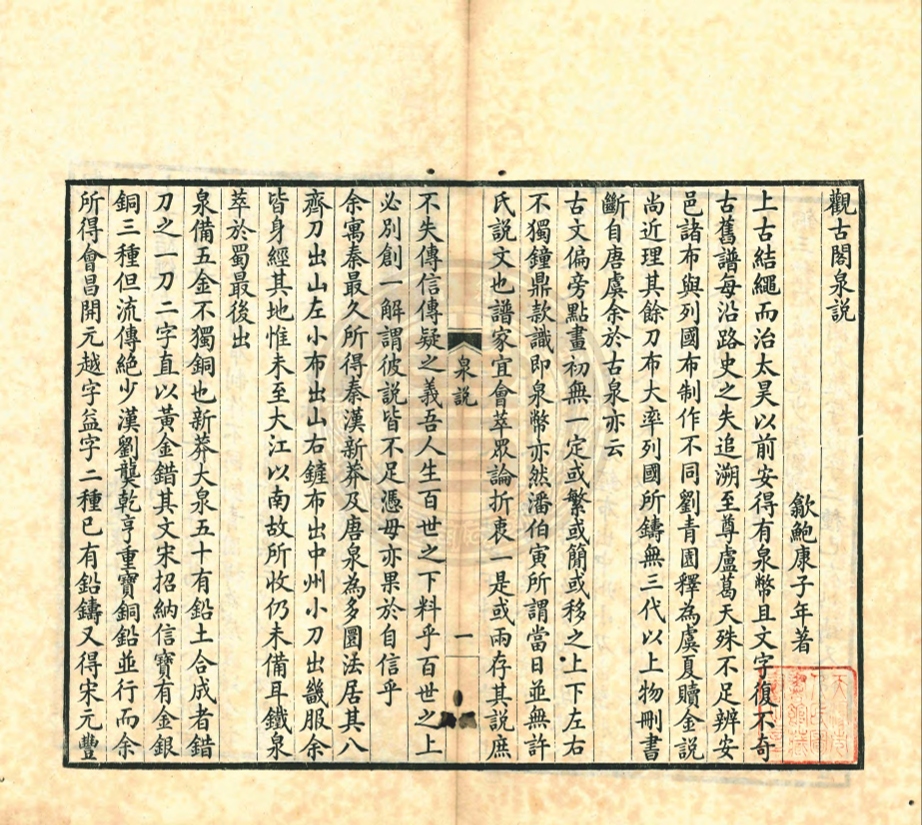 觀古閣泉説
歙鮑康子年著
上古結繩而治太昊以前安得有泉幣且文字復不奇
古舊譜每沿路史之失追溯至尊盧葛天殊不足辨安
邑諸布與列國布制作不同劉青園釋為虞夏贖金説
尚近理其餘刀布大率列國所鑄無三代以上物刪書
斷自唐虞余於古泉亦云
古文偏旁點畫初無一定或繁或簡或移之上下左右
不獨鐘鼎款識即泉幣亦然潘伯寅所謂當日並無許
氏説文也譜家宜會萃眾論折衷一是或兩存其説庶
泉説
一
不失傳信傳疑之義吾人生百世之下料乎百世之上
必別創一解謂彼説皆不足憑毋亦果於自信乎
余寓秦最久所得秦漢新莽及唐泉為多圜法居其八
齊刀出山左小布出山右鏟布出中州小刀出畿服余
皆身經其地惟未至大江以南故所收仍未備耳鐵泉
萃於蜀最後出
泉備五金不獨銅也新莽大泉五十有鉛土合成者錯
刀之一刀二字直以黃金錯其文宋招納信寶有金銀
銅三種但流傳絕少漢劉龑乾亨重寶銅鉛並行而余
所得會昌開元越字益字二種已有鉛鑄又得宋元豐